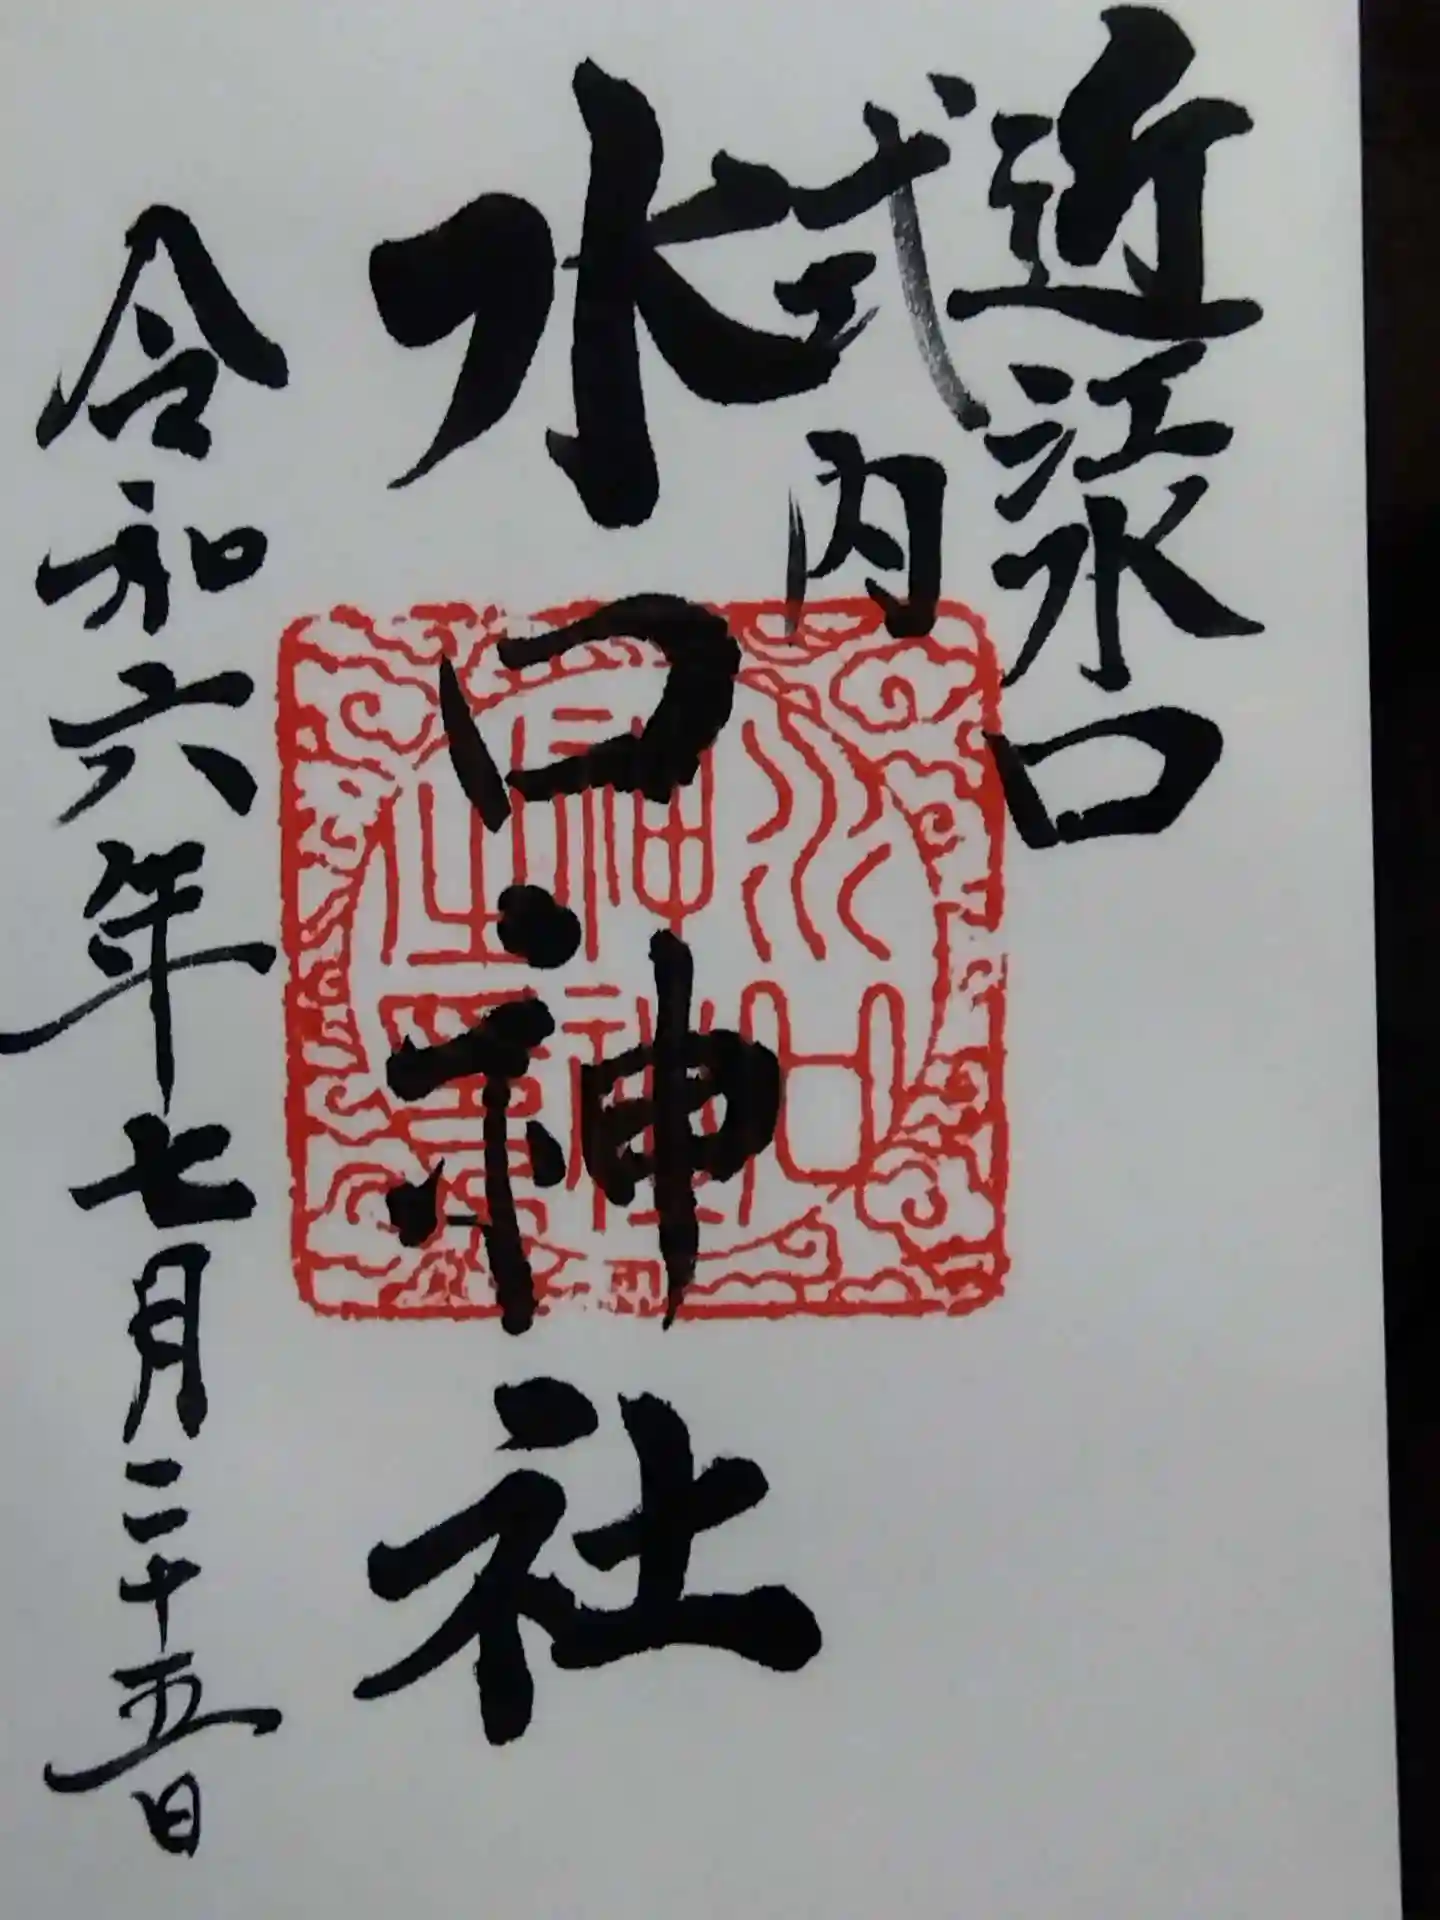 近江水口
式内
水口神社
令和六年七月二十五日
水口神社